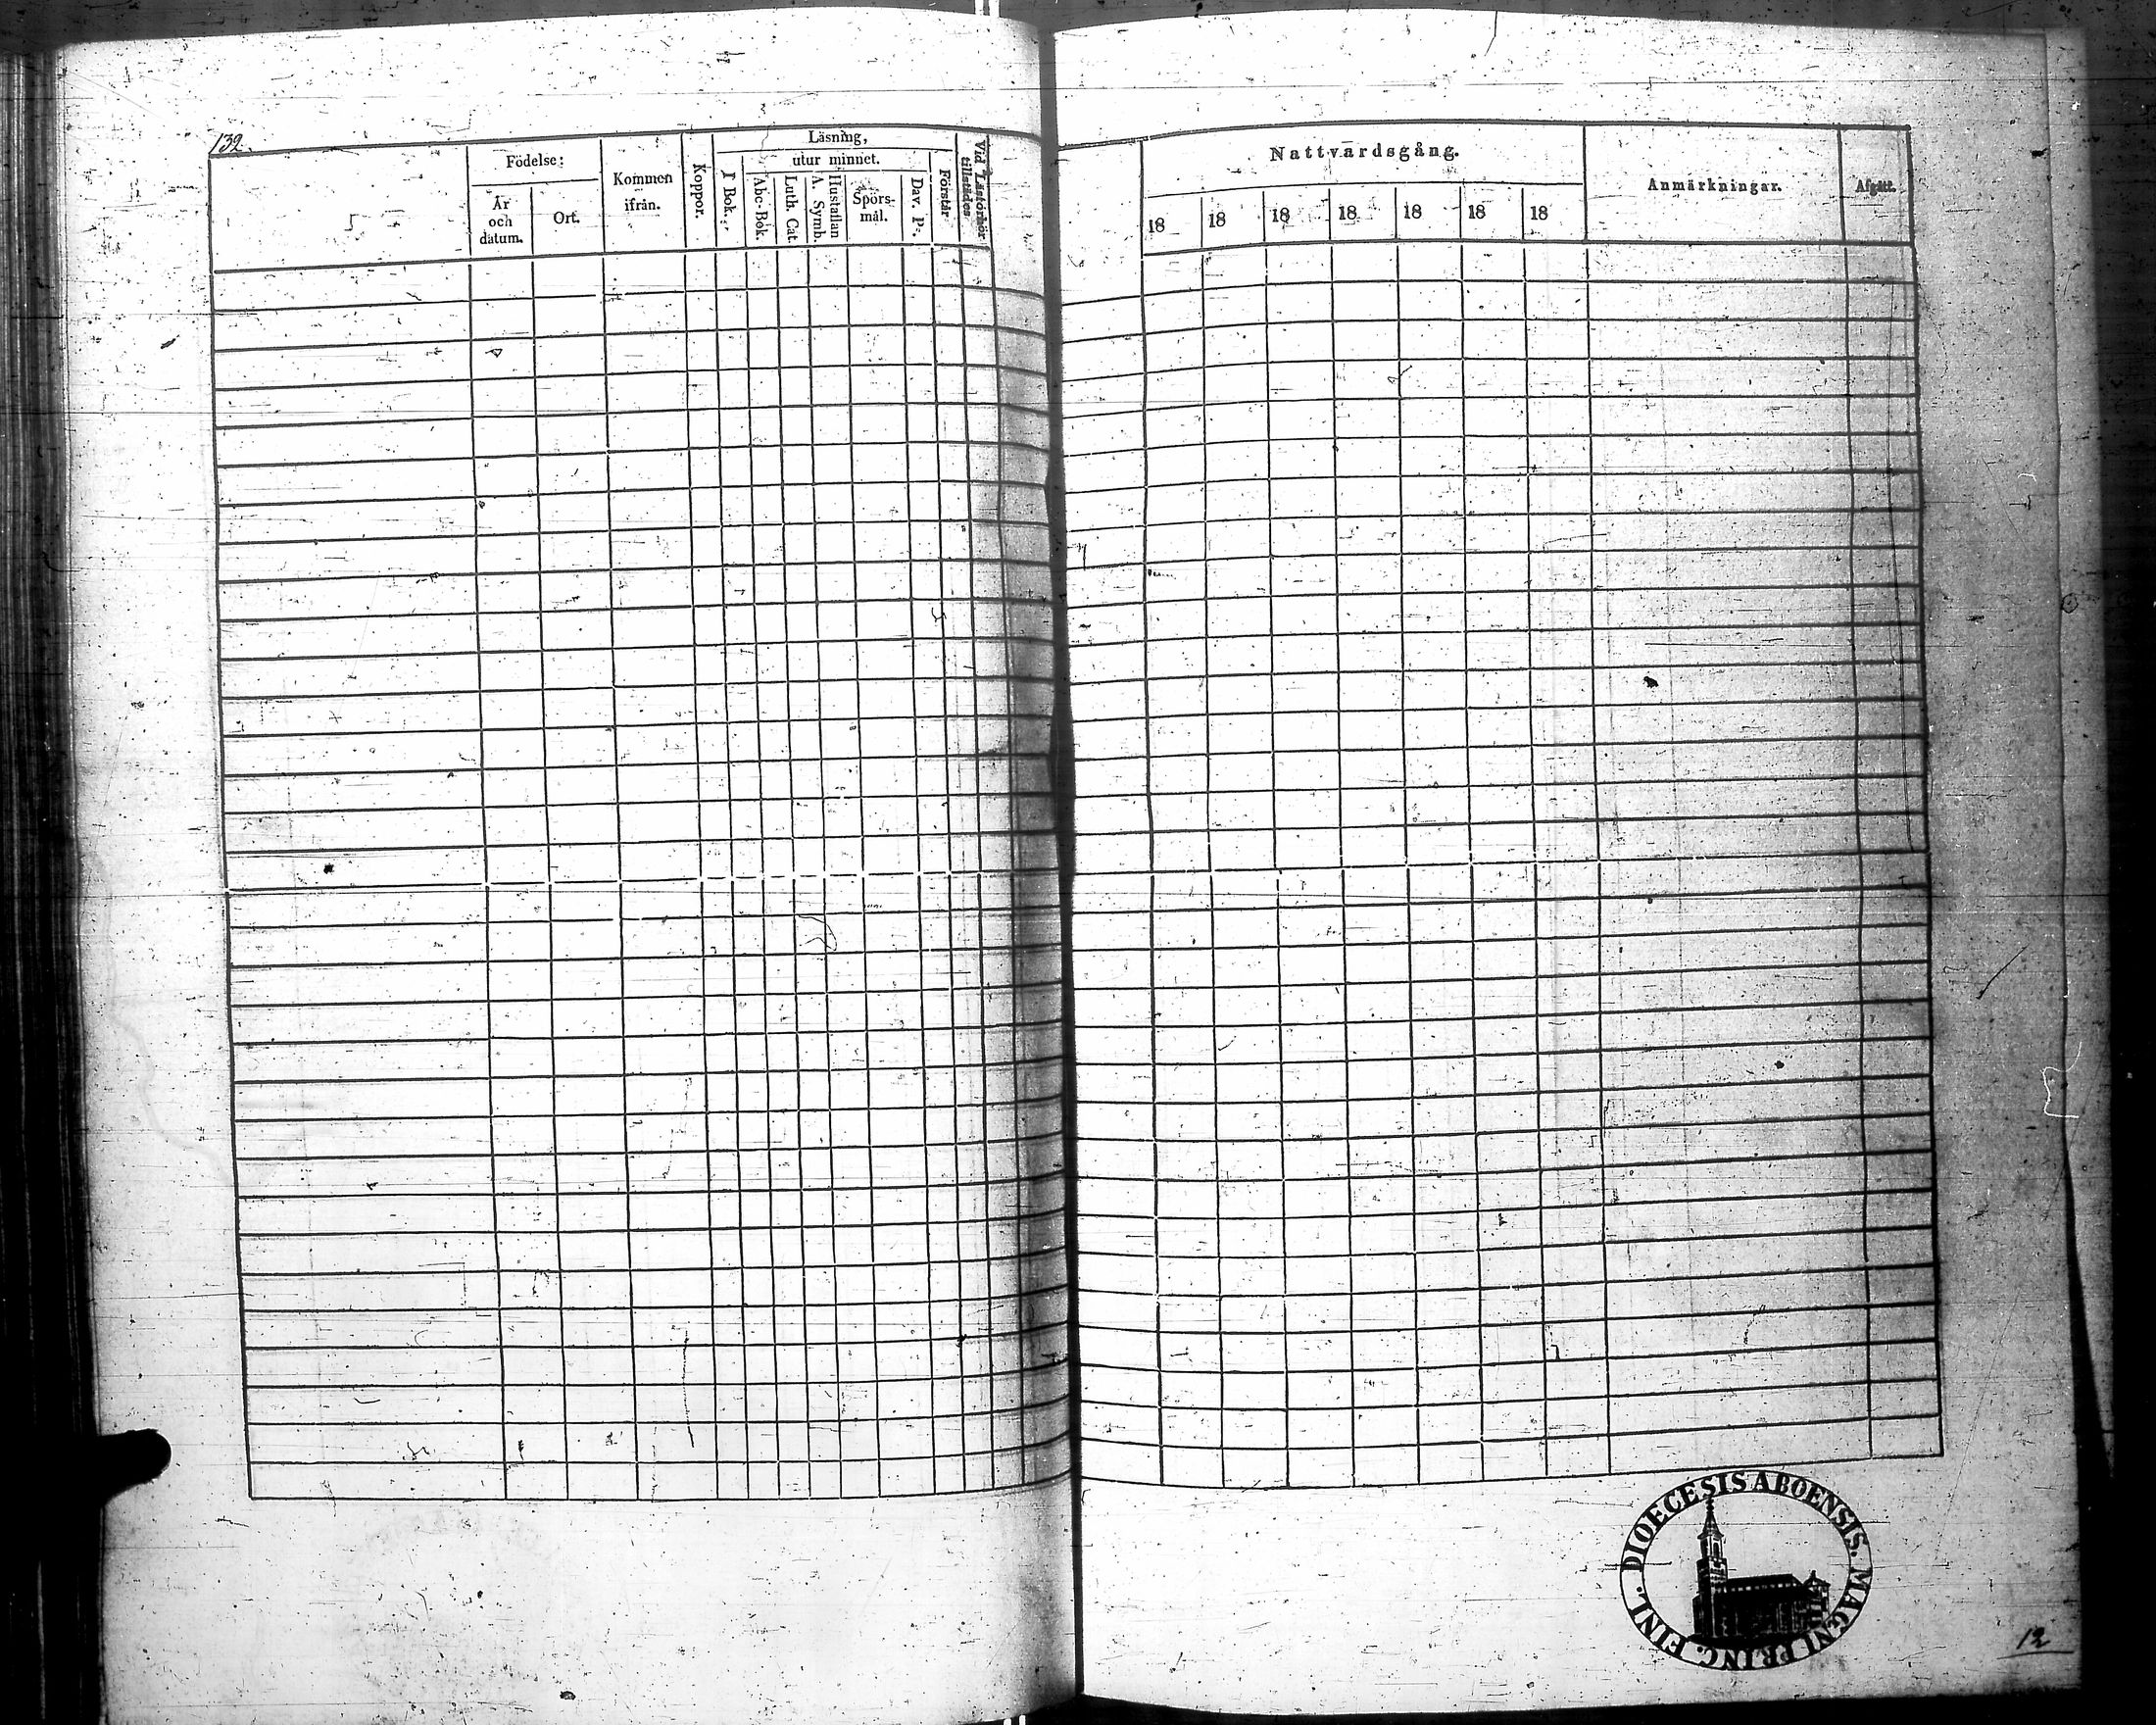 132.
Födelse:
År och datum.
Ort.
Kommen ifrån.
Koppor.
Läsning,
I Bok.
utur minnet.
Abc-Bok.
Luth. Cat.
Hustaflan A. Symb.
Spörs-mål.
Dav. Ps.
Förstår
Vid Läsförhör tillstädes
Nattvardsgång.
18 18 18 18 18 18 18
Anmärkningar.
Afgått.
DIOECESIS ABOENSIS. MAGNI PRINC. FINL.
12